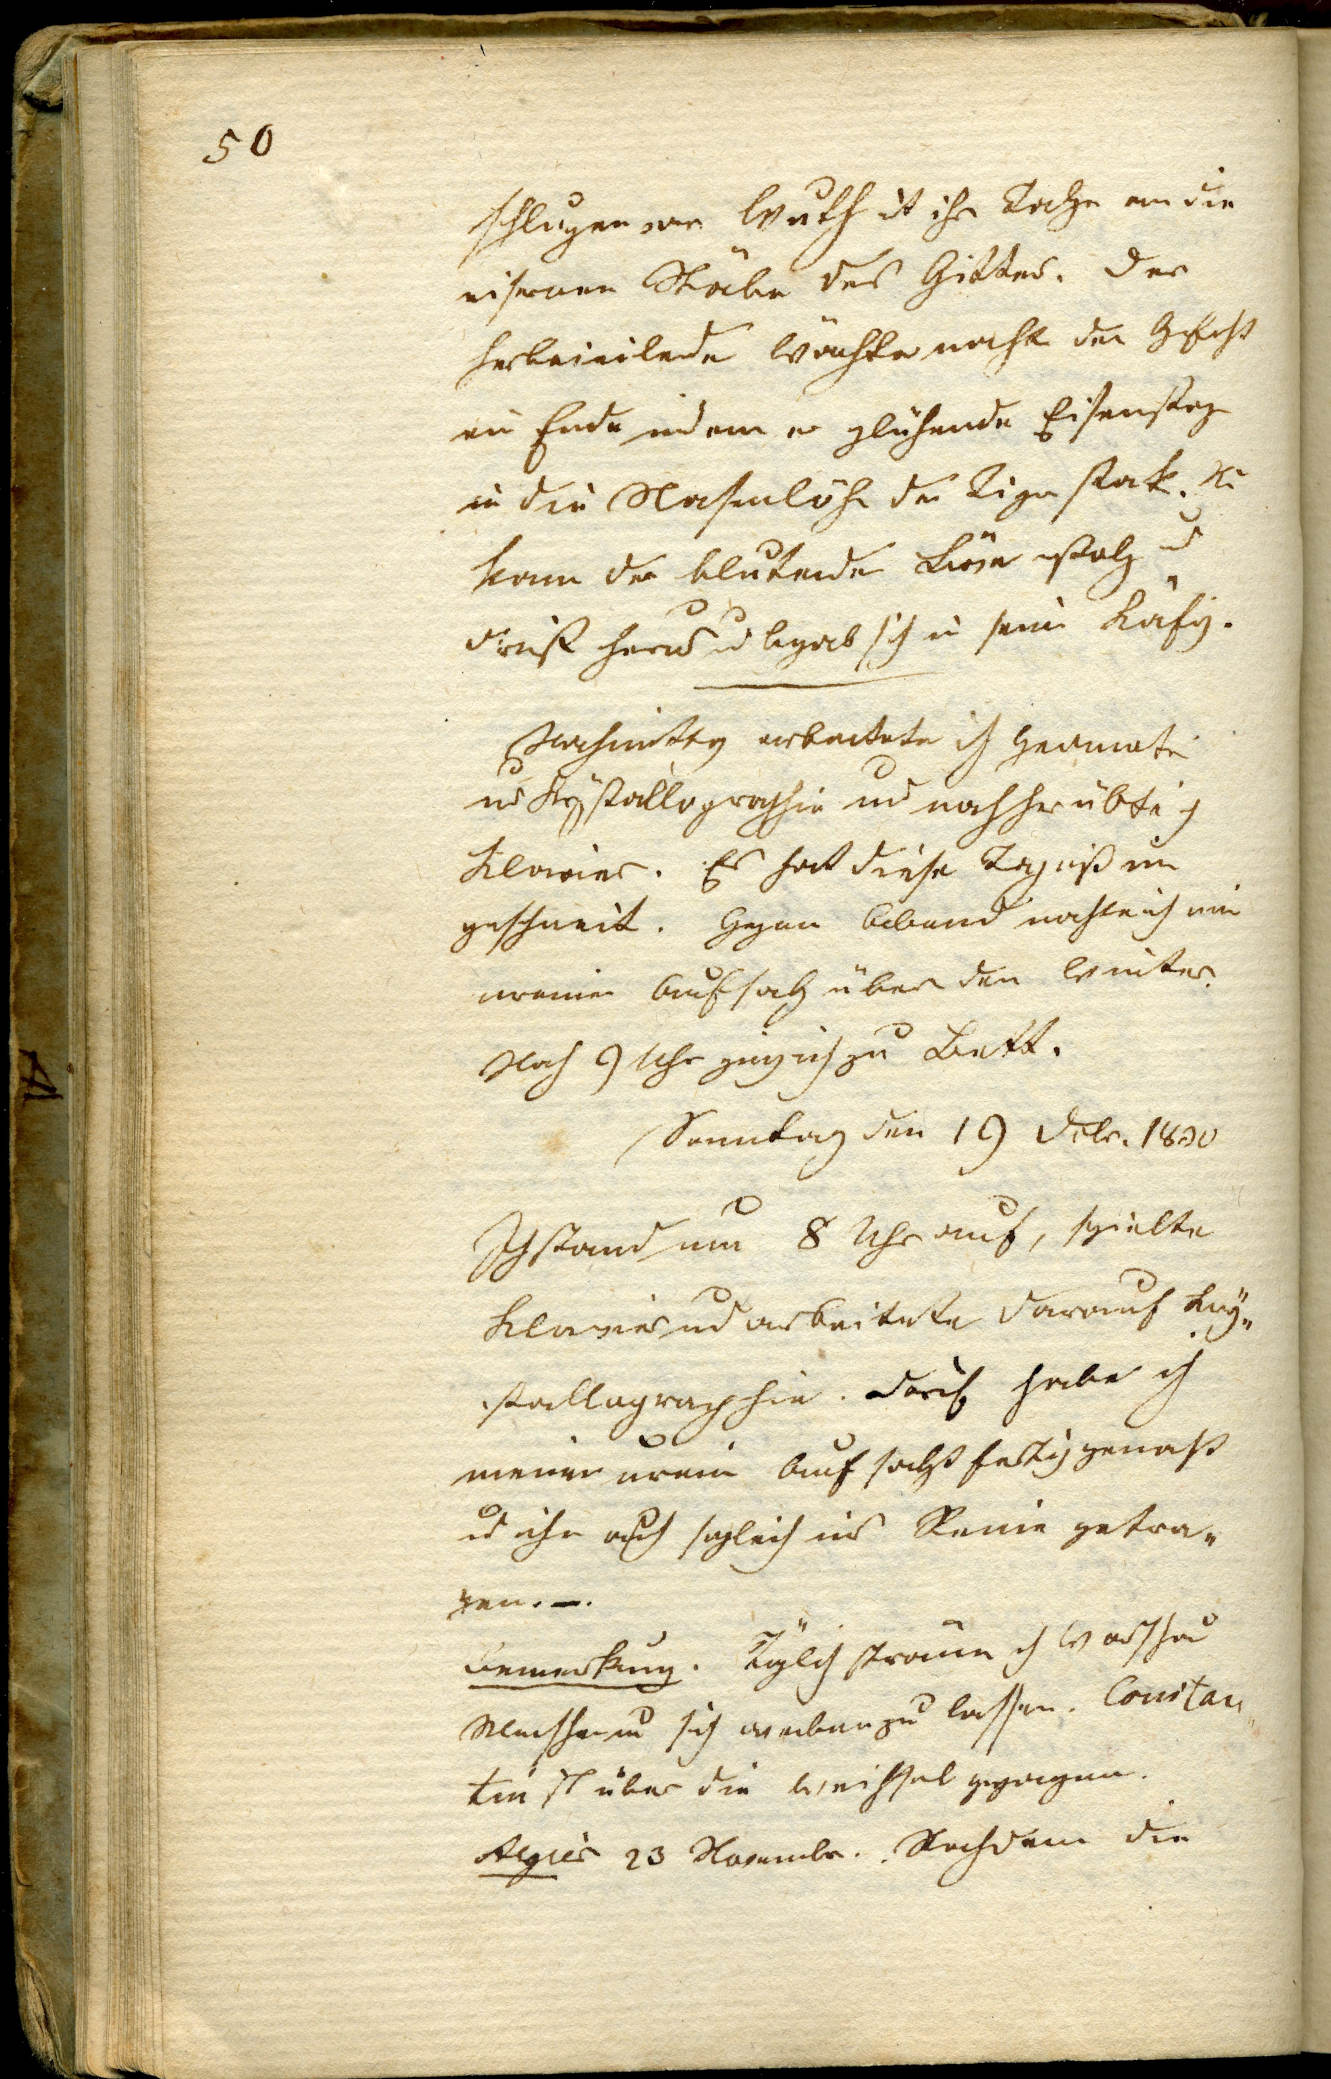 50
schlugen vor Wuth it ihr Tatze an die
eisernen Stäbe des Gitters. Der
herbeieilende Wächter macht den Gefecht
ein Ende indem er glühende Eisenstäge
in die Nasenlöhe der Tiger stak. Nu
kam der blutende Löwe stolz und
dreist heraus u begab sich in sein Käfig.
Nachmittag arbeitete ich Geometri
u Krÿstallographie und nachher übte ich
Klavier. Es hat diese Tag im
geschneit. Gegen Abend machte ich ein
ureinen Aufsatz über den Winter.
Nach 9 Uhr ging ich zu Bett.
Sonntag den 19 Dcbr. 1830
Ich stand um 8 Uhr auf, spielte
Klavier und arbeitete darauf Krÿ„
stallographie. habe ich
meinen urein Aufsatz fertig gemacht
u ihn auch sogleich ins Reine getra„
gen.–.
Bemerkung. Täglich ströme ch Warschau
Menschen u sich werben zu lassen. Constan„
tin ist über die Weichsel gegangen.
Algier 23 Novembr. Nachdem die